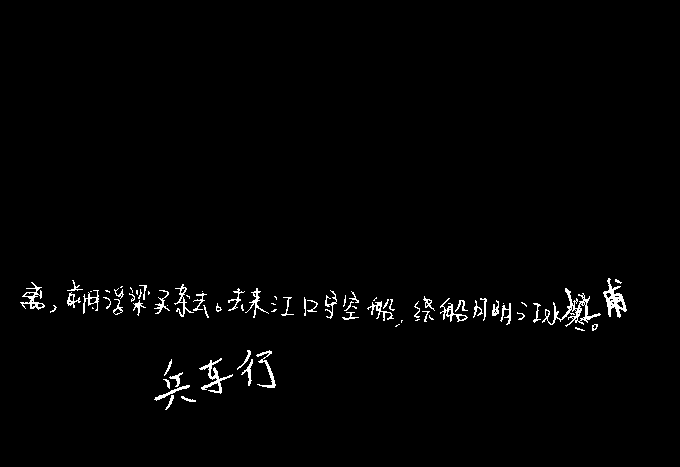 离，前月浮梁买茶去。去来江口守空船，绕船月明江水寒。甫
兵车行